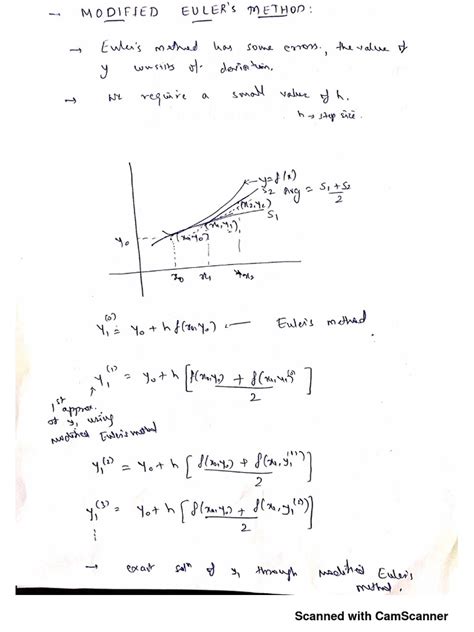 → MODIFIED EULER'S METHOD:
→ Euler's method has some errors, the value of
y consists of deviation.
→ We require a small value of h.
h → step size.
y=f(x)
S2 Avg = S1+S2/2
(x2,y2)
S1
y0 (x0,y0) (x1,y1)
x0 x1 x2
y1(0) = y0 + h f(x0,y0) ← Euler's method
y1(1) = y0 + h [f(x0,y0) + f(x1,y1(0))/2]
1st approx.
of y1 using
modified Euler's method
y1(2) = y0 + h [f(x0,y0) + f(x1,y1(1))/2]
y1(3) = y0 + h [f(x0,y0) + f(x1,y1(2))/2]
⋮
→ exact soln of y1 through modified Euler's
method.
Scanned with CamScanner